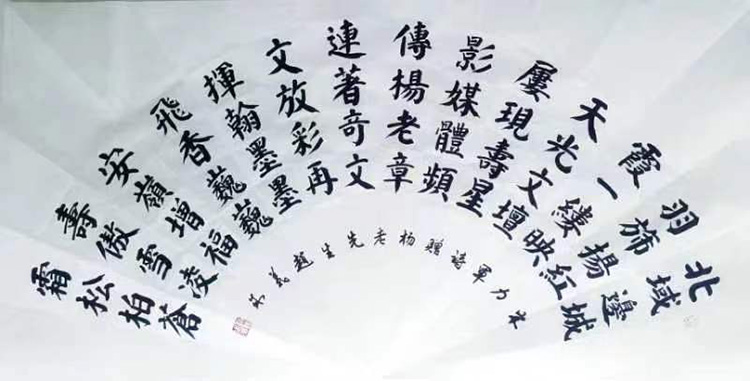 北域邊城
羽旆揚紅
霞一缕映
天光文壇
屢現壽星
影媒體頻
傳揚老章
連著奇文
文放彩再
揮翰墨墨
飛香巍巍
安嶺增福
壽傲雪凌
霜松柏蒼
力軍詩贈杨老先生趙義